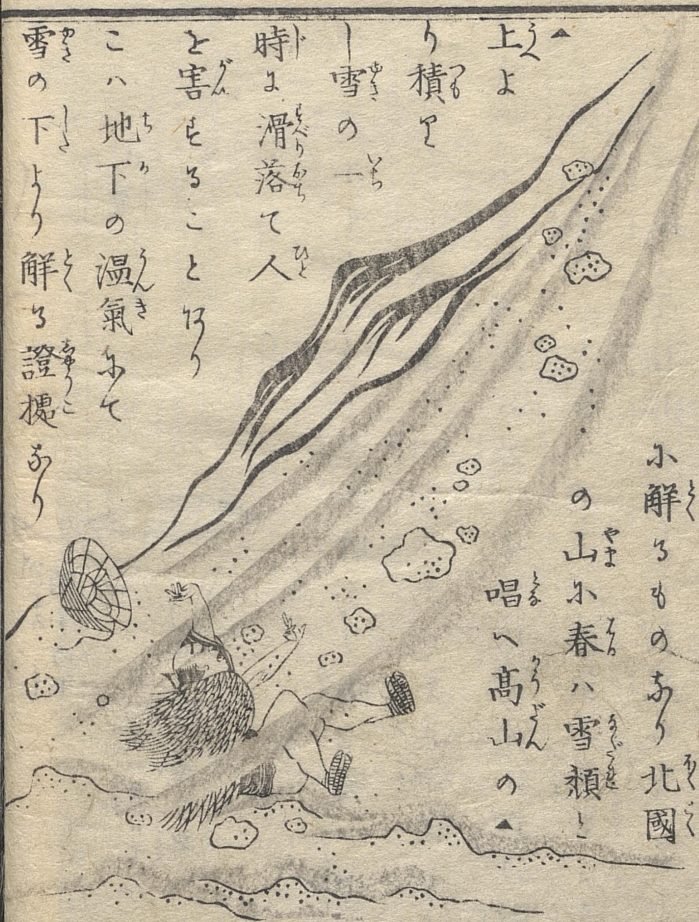 に解るものなり北國
の山に春ハ雪頽と
唱へ髙山の▲
▲上よ
り積り
し雪の一
時に滑落て人
を害することあり
こハ地下の温氣にて
雪の下より解る證拠なり